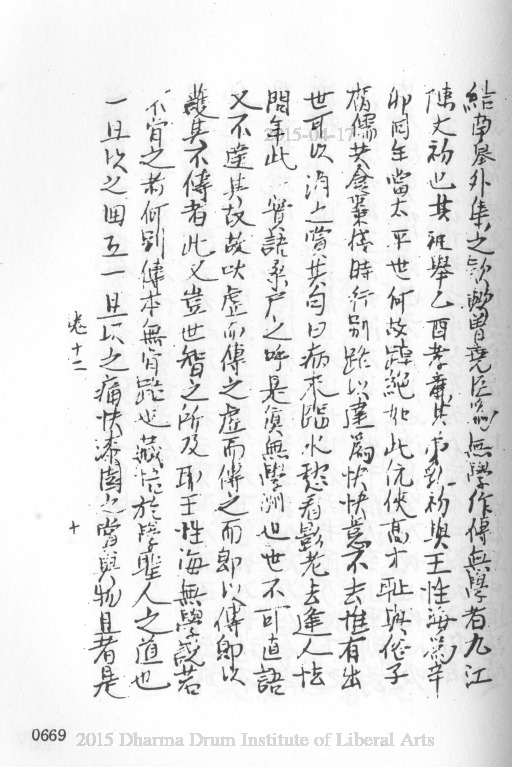 結茆皋外集之欵鷗曾堯臣為無學作傳無學者九江
陳丈初也其祖舉乙酉孝廉其弟乳初與王性海為辛
卯同年當太平世何故踔絕如此伉俠高才恥與俗子
腐儒共食棗棧時行別路以達為快快意不去惟有出
世可以消之嘗共句曰病來臨水愁看影老去逢人怯
問年此一實語柔戶之呼是復無學洲也世不可直語
又不達其故故吠虛而傳之虛而傳之而即以傳即以
護其不傳者此又豈世智之所及耶王性海無學說若
不肖之者何別傳本無肖路也藏悟於學聖人之道也
一旦以之回互一旦以之痛快漆園之嘗與物且者是
卷十二
十
0669
2015-04-17
2015 Dharma Drum Institute of Liberal Arts